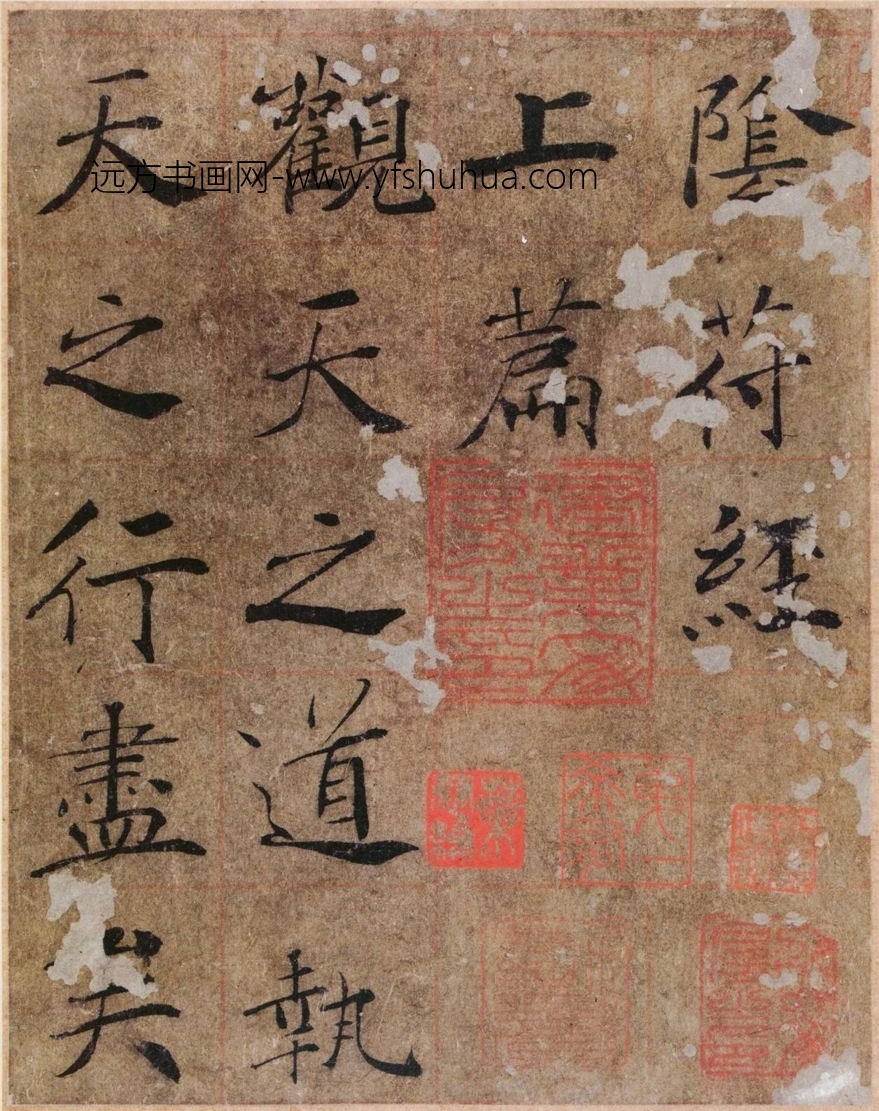 陰符經
上篇
觀天之道執
天之行盡矣
远方书画网-www.yfshuhua.com